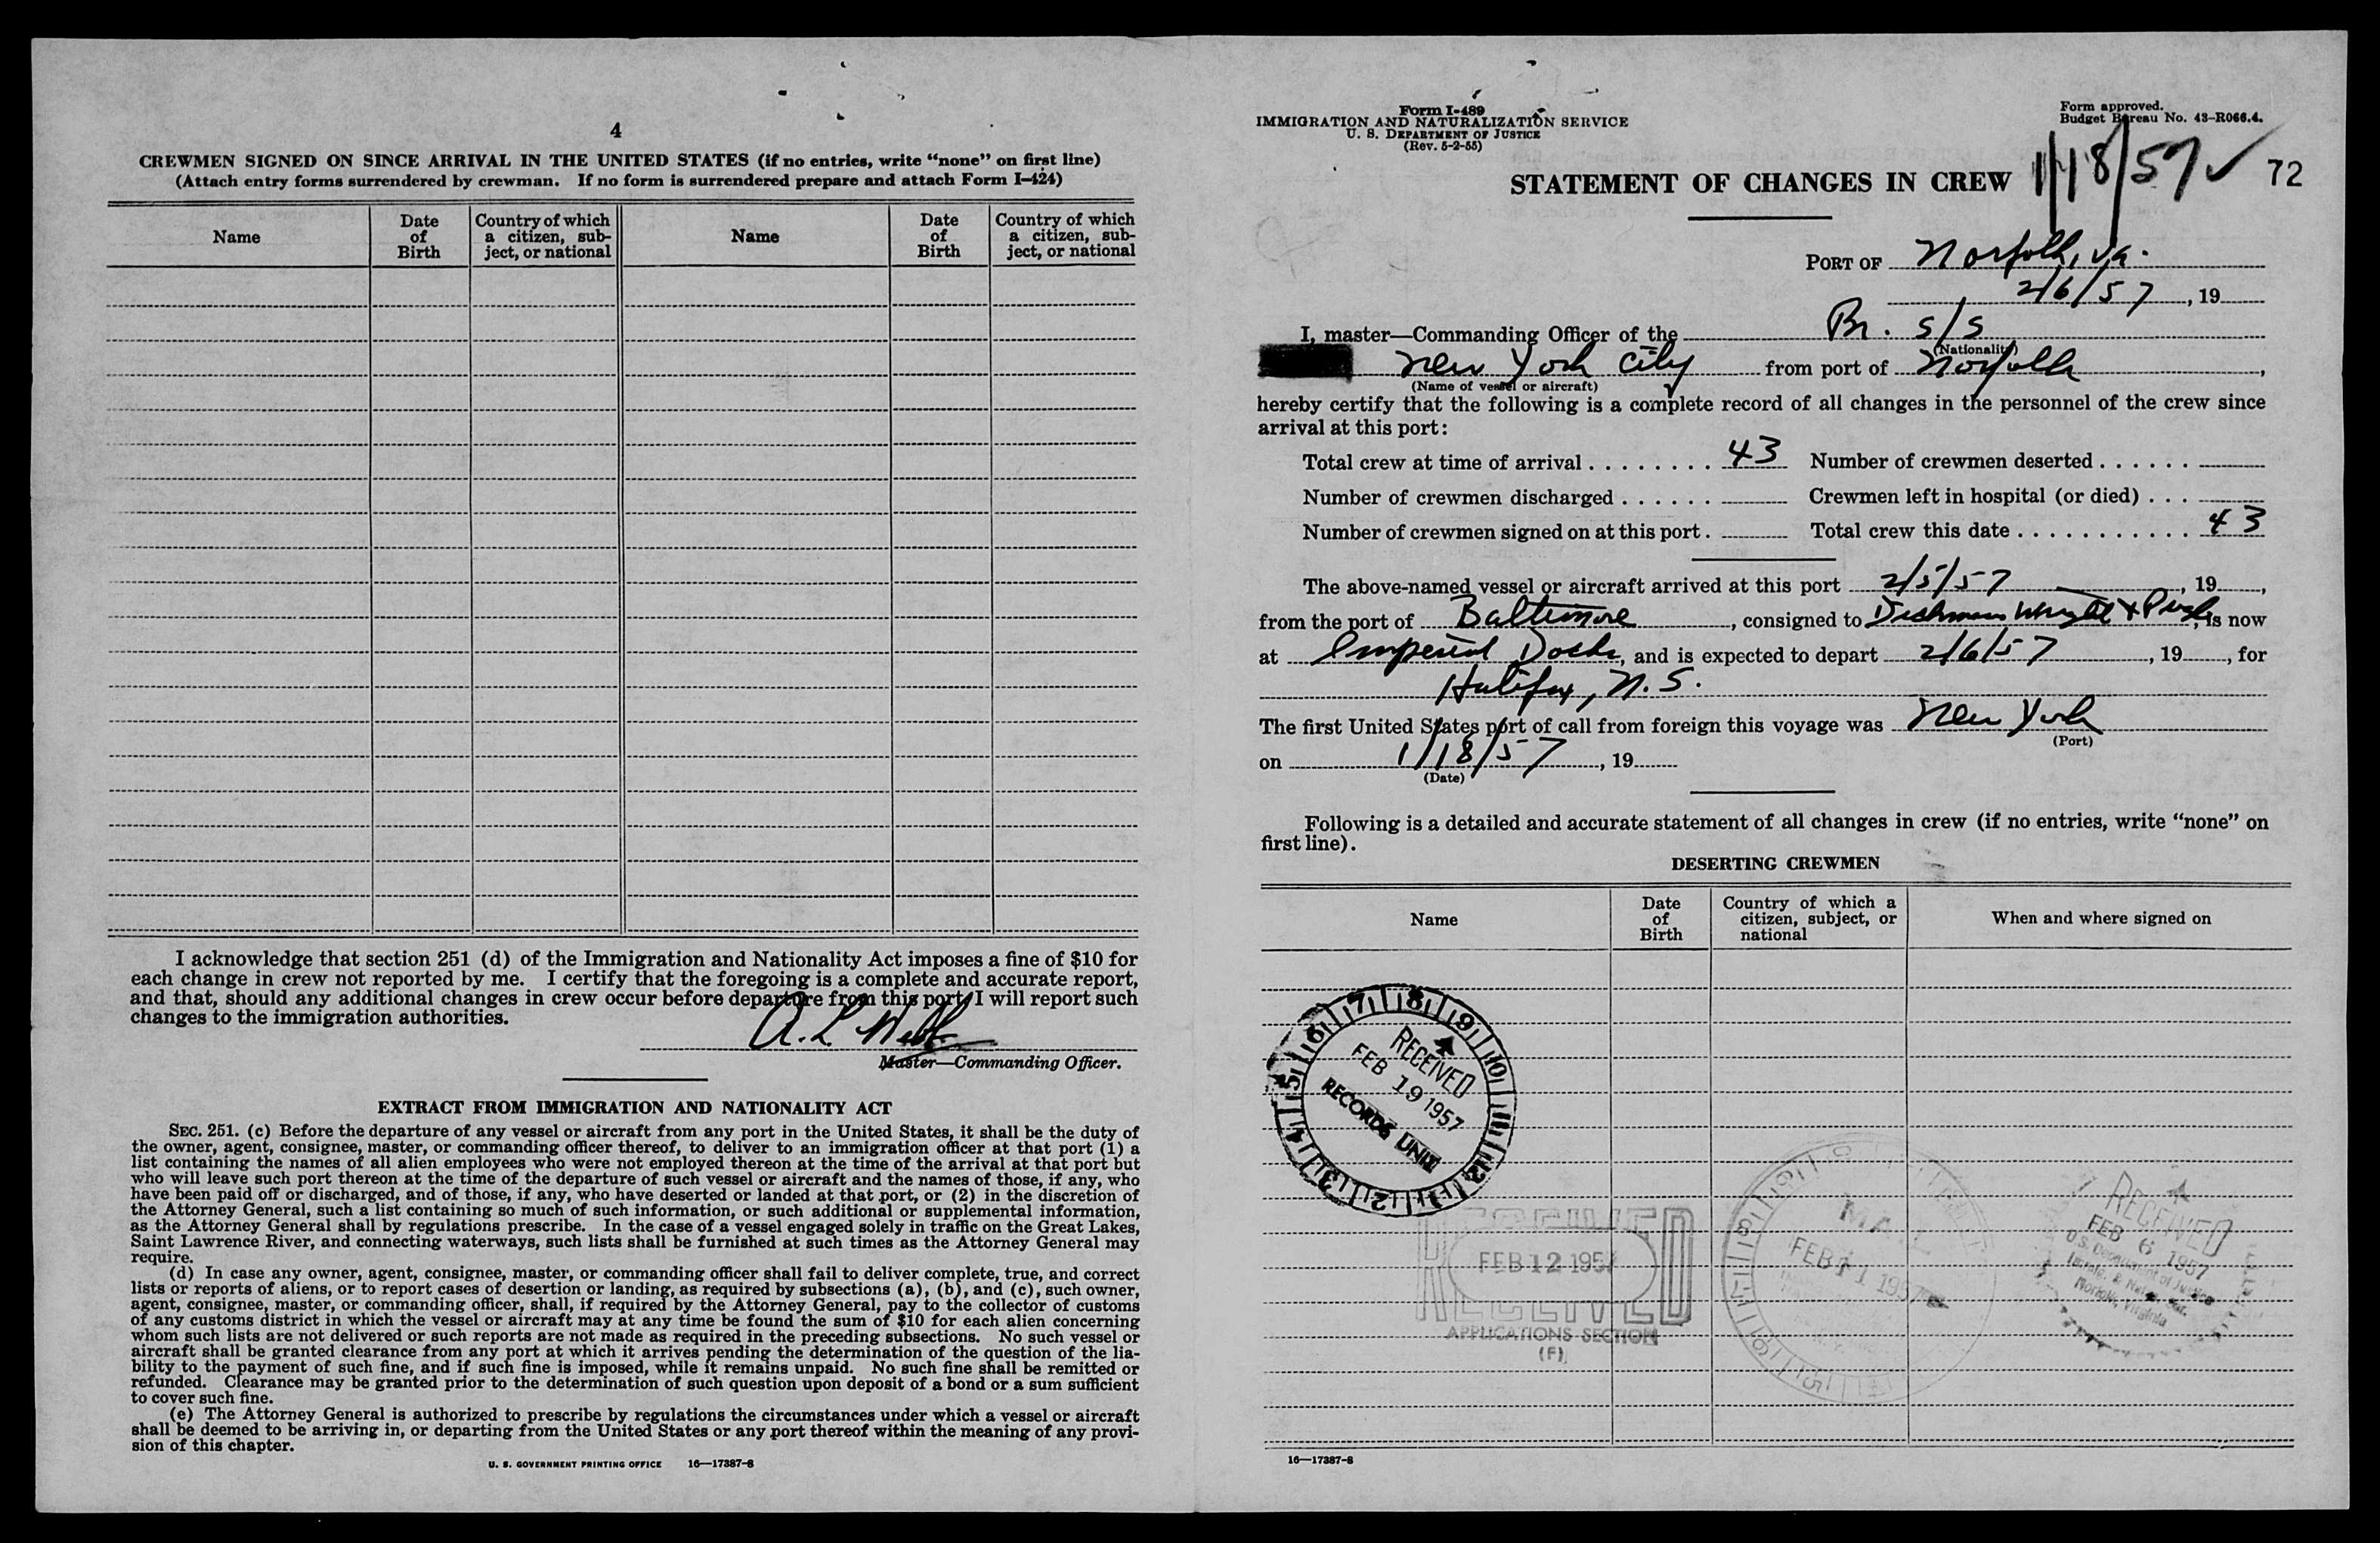 4
CREWMEN SIGNED ON SINCE ARRIVAL IN THE UNITED STATES (if no entries, write “none” on first line)
(Attach entry forms surrendered by crewman. If no form is surrendered prepare and attach Form I–424)
Name
Date of Birth
Country of which a citizen, subject, or national
Name
Date of Birth
Country of which a citizen, subject, or national
I acknowledge that section 251 (d) of the Immigration and Nationality Act imposes a fine of $10 for
each change in crew not reported by me. I certify that the foregoing is a complete and accurate report,
and that, should any additional changes in crew occur before departure from this port, I will report such
changes to the immigration authorities.
A. L. Webb
Master—Commanding Officer.
EXTRACT FROM IMMIGRATION AND NATIONALITY ACT
SEC. 251. (c) Before the departure of any vessel or aircraft from any port in the United States, it shall be the duty of
the owner, agent, consignee, master, or commanding officer thereof, to deliver to an immigration officer at that port (1) a
list containing the names of all alien employees who were not employed thereon at the time of the arrival at that port but
who will leave such port thereon at the time of the departure of such vessel or aircraft and the names of those, if any, who
have been paid off or discharged, and of those, if any, who have deserted or landed at that port, or (2) in the discretion of
the Attorney General, such a list containing so much of such information, or such additional or supplemental information,
as the Attorney General shall by regulations prescribe. In the case of a vessel engaged solely in traffic on the Great Lakes,
Saint Lawrence River, and connecting waterways, such lists shall be furnished at such times as the Attorney General may
require.
(d) In case any owner, agent, consignee, master, or commanding officer shall fail to deliver complete, true, and correct
lists or reports of aliens, or to report cases of desertion or landing, as required by subsections (a), (b), and (c), such owner,
agent, consignee, master, or commanding officer, shall, if required by the Attorney General, pay to the collector of customs
of any customs district in which the vessel or aircraft may at any time be found the sum of $10 for each alien concerning
whom such lists are not delivered or such reports are not made as required in the preceding subsections. No such vessel or
aircraft shall be granted clearance from any port at which it arrives pending the determination of the question of the lia-
bility to the payment of such fine, and if such fine is imposed, while it remains unpaid. No such fine shall be remitted or
refunded. Clearance may be granted prior to the determination of such question upon deposit of a bond or a sum sufficient
to cover such fine.
(e) The Attorney General is authorized to prescribe by regulations the circumstances under which a vessel or aircraft
shall be deemed to be arriving in, or departing from the United States or any port thereof within the meaning of any provi-
sion of this chapter.
U. S. GOVERNMENT PRINTING OFFICE 16—17387-8
Form I-489
IMMIGRATION AND NATURALIZATION SERVICE
U. S. DEPARTMENT OF JUSTICE
(Rev. 5-2-55)
Form approved.
Budget Bureau No. 43–R066.4.
STATEMENT OF CHANGES IN CREW 1/18/57 ✓ 72
PORT OF Norfolk, Va.
2/6/57, 19
I, master—Commanding Officer of the Br. s/s
(Nationality)
New York City from port of Norfolk,
(Name of vessel or aircraft)
hereby certify that the following is a complete record of all changes in the personnel of the crew since
arrival at this port:
Total crew at time of arrival . . . . . . . . 43 Number of crewmen deserted . . . . . .
Number of crewmen discharged . . . . . . Crewmen left in hospital (or died) . . .
Number of crewmen signed on at this port . Total crew this date . . . . . . . . . . . 43
The above-named vessel or aircraft arrived at this port 2/5/57, 19,
from the port of Baltimore, consigned to Wright &, is now
at Imperial Docks, and is expected to depart 2/6/57, 19, for
Halifax, N. S.
The first United States port of call from foreign this voyage was New York
(Port)
on 1/18/57, 19
(Date)
Following is a detailed and accurate statement of all changes in crew (if no entries, write “none” on
first line).
DESERTING CREWMEN
Name
Date of Birth
Country of which a citizen, subject, or national
When and where signed on
7 8 9 10 11 12 1 2 3 4 5 6
RECEIVED
FEB 19 1957
RECORDS UNIT
RECEIVED
FEB 12 1957
RECEIVED
APPLICATIONS SECTION
(F)
MAIL
FEB 11 1957
RECEIVED
FEB 6 1957
U.S. Department of Justice
Immig. & Natz. Ser.
Norfolk, Virginia
16—17387-8